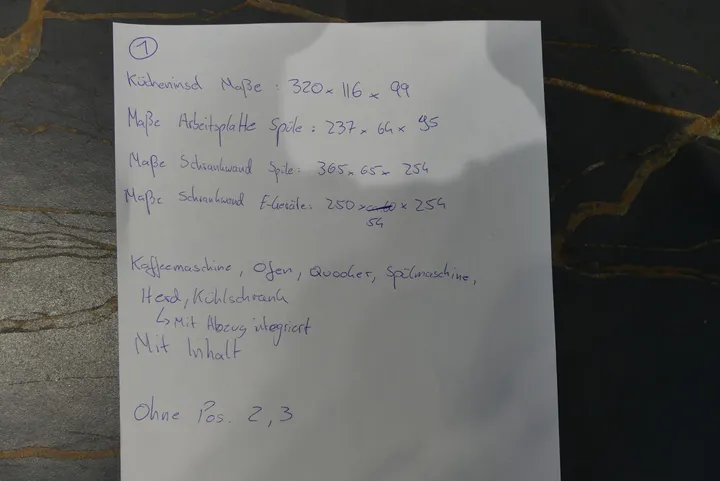 1
Kücheninsel Maße : 320 x 116 x 99
Maße Arbeitsplatte Spüle : 237 x 64 x 95
Maße Schrankwand Spüle : 365 x 65 x 254
Maße Schrankwand E-Geräte : 250 x x 254
54
Kaffeemaschine, Ofen, Quooker, Spülmaschine,
Herd, Kühlschrank
↳ Mit Abzug integriert
Mit Inhalt
Ohne Pos. 2, 3